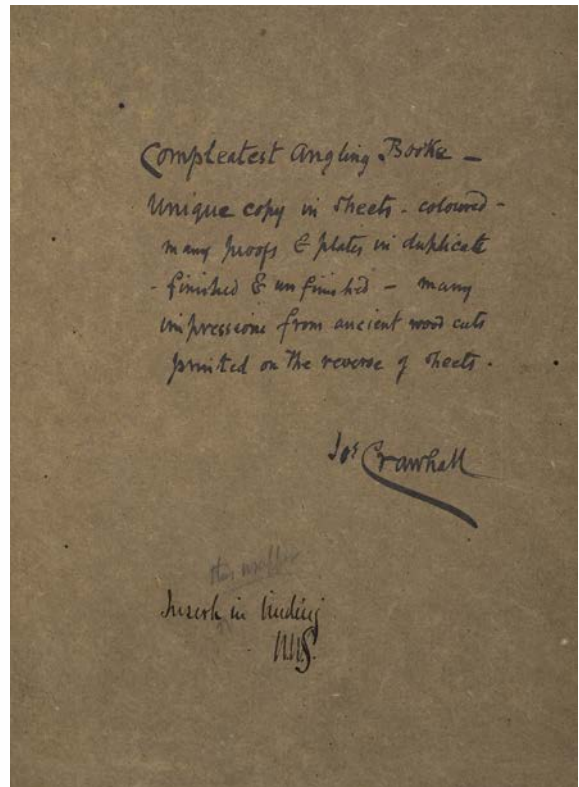 Compleatest Angling Booke –
Unique copy in sheets – coloured –
many proofs & plates in duplicate
– finished & unfinished – many
impressions from ancient wood cuts
printed on the reverse of sheets.
Jos Crawhall
this
Insert in binding